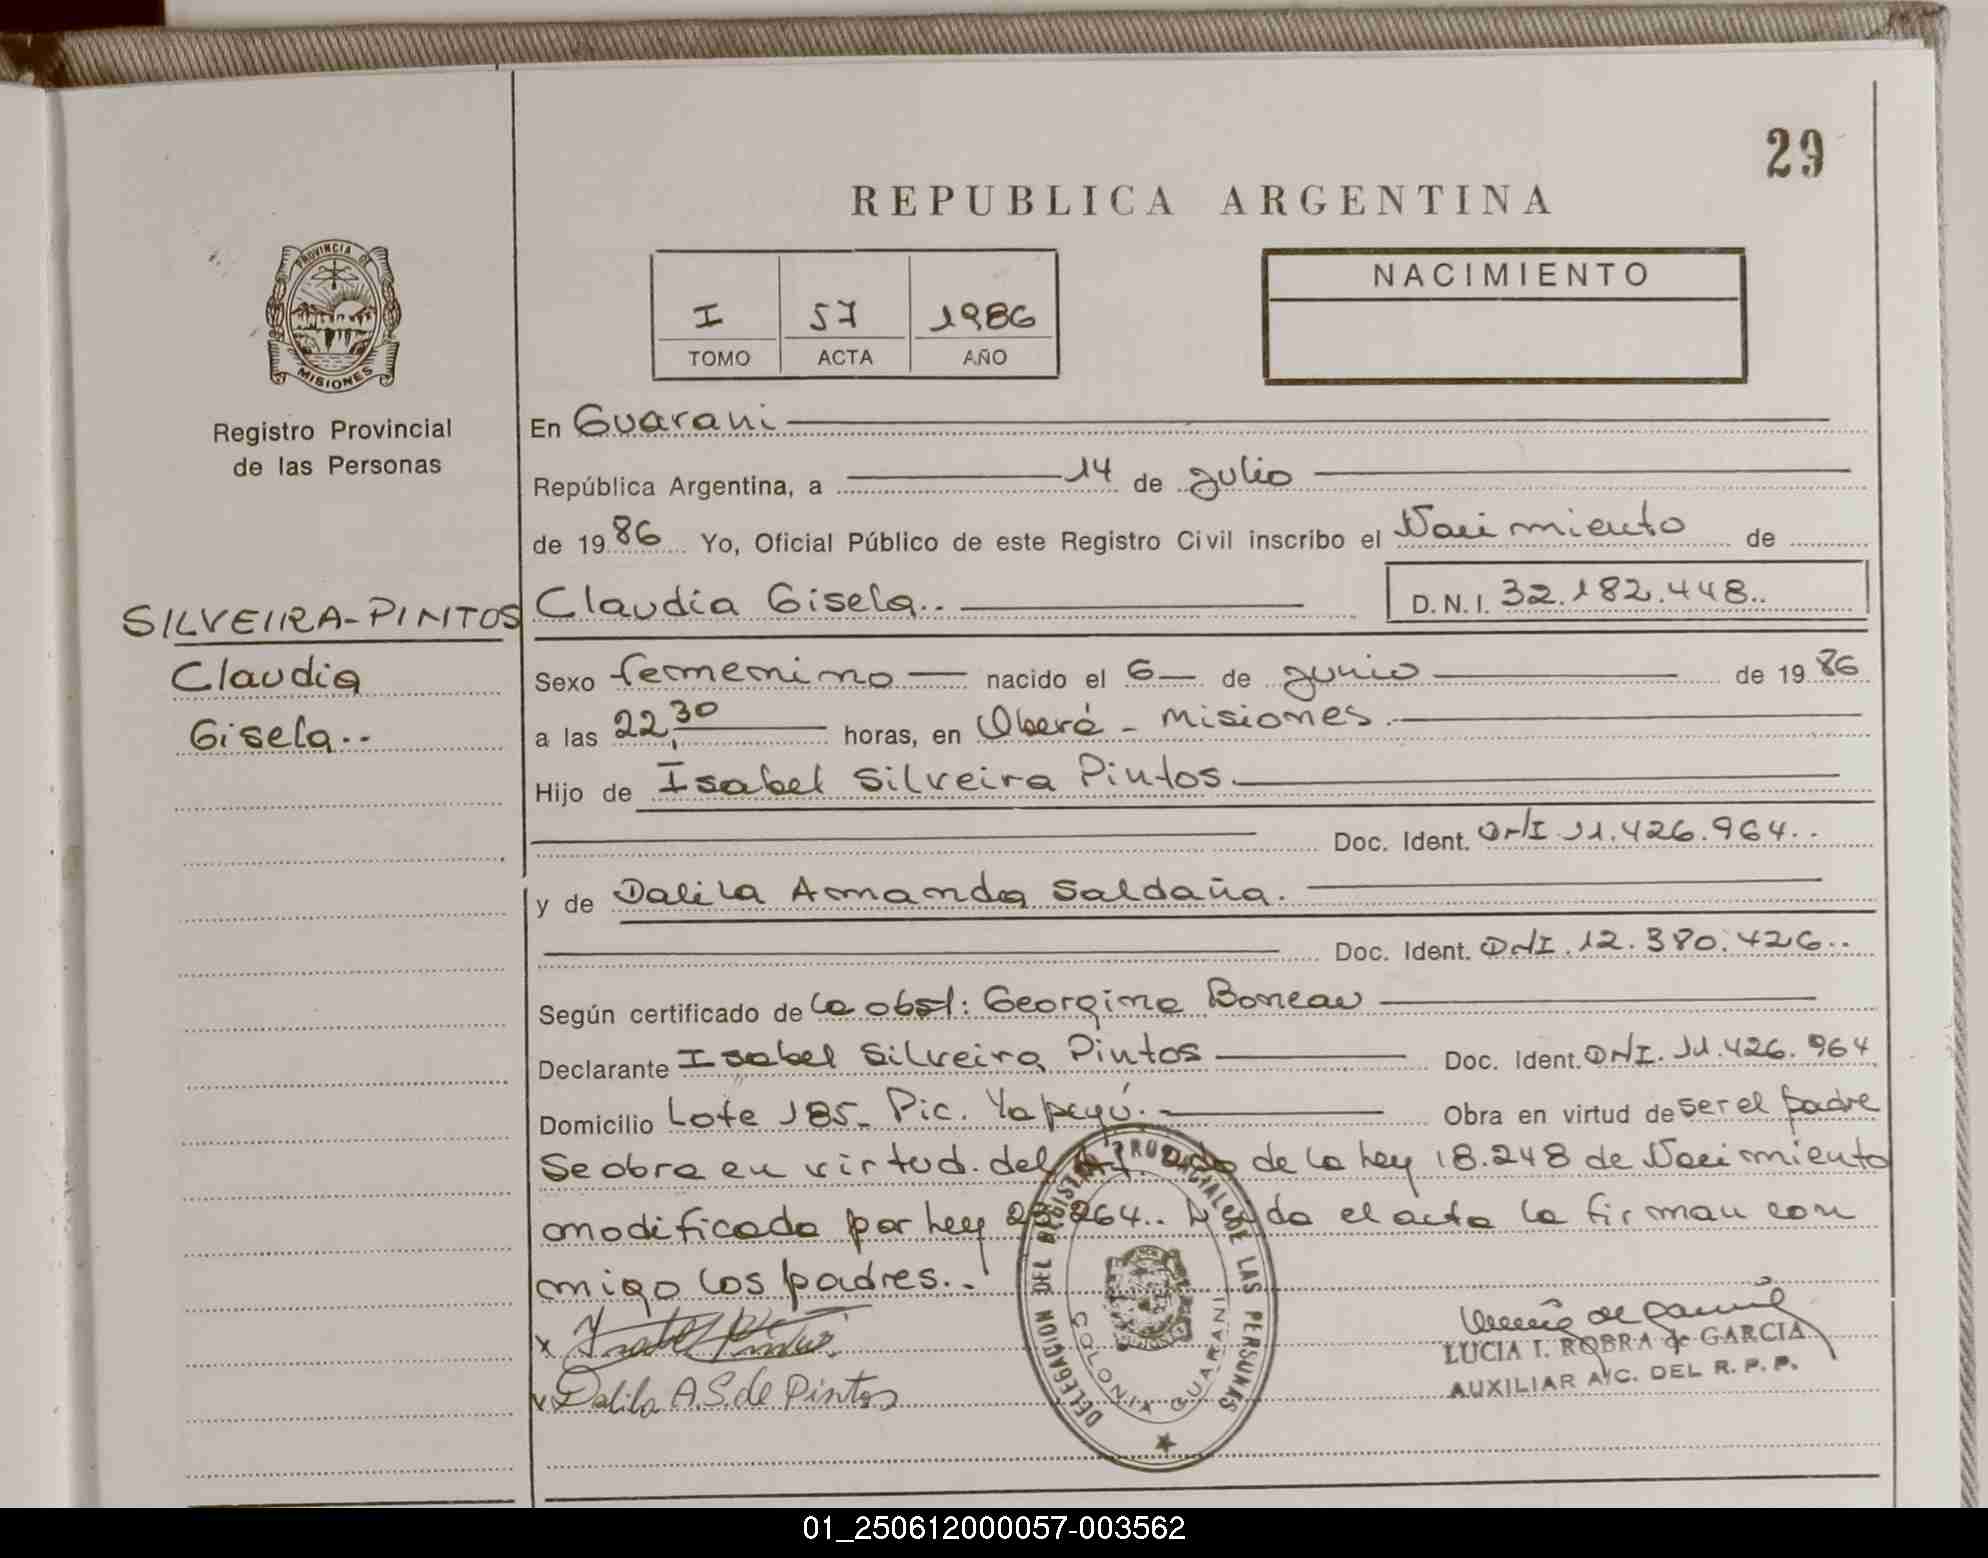 29
REPUBLICA ARGENTINA
PROVINCIA DE
MISIONES
Registro Provincial
de las Personas
I 57 1986
TOMO ACTA AÑO
NACIMIENTO
En Guarani
República Argentina, a 14 de julio
de 1986 Yo, Oficial Público de este Registro Civil inscribo el Nacimiento de
SILVEIRA-PINTOS
Claudia
Gisela..
Claudia Gisela.. D.N.I. 32.182.448..
Sexo femenino nacido el 6 de junio de 1986
a las 22,30 horas, en Oberá - Misiones.
Hijo de Isabel Silveira Pintos.
Doc. Ident. DNI 11.426.964..
y de Dalila Amanda Saldaña.
Doc. Ident. DNI. 12.380.426..
Según certificado de la obst: Georgina Boneau
Declarante Isabel Silveira Pintos Doc. Ident. DNI. 11.426.964
Domicilio Lote 185_ Pic. Yapeyú. Obra en virtud de ser el padre
Se obra en virtud. del de la Ley 18.248 de Nacimiento
modificada por Ley 264.. el acta la firman con
migo los padres..
x
x Dalila A.S. de Pintos
DELEGACION DEL REGISTRO PROVINCIAL DE LAS PERSONAS
COLONIA GUARANI
LUCIA I. ROBRA de GARCIA
AUXILIAR A/C. DEL R. P. P.
01_250612000057-003562